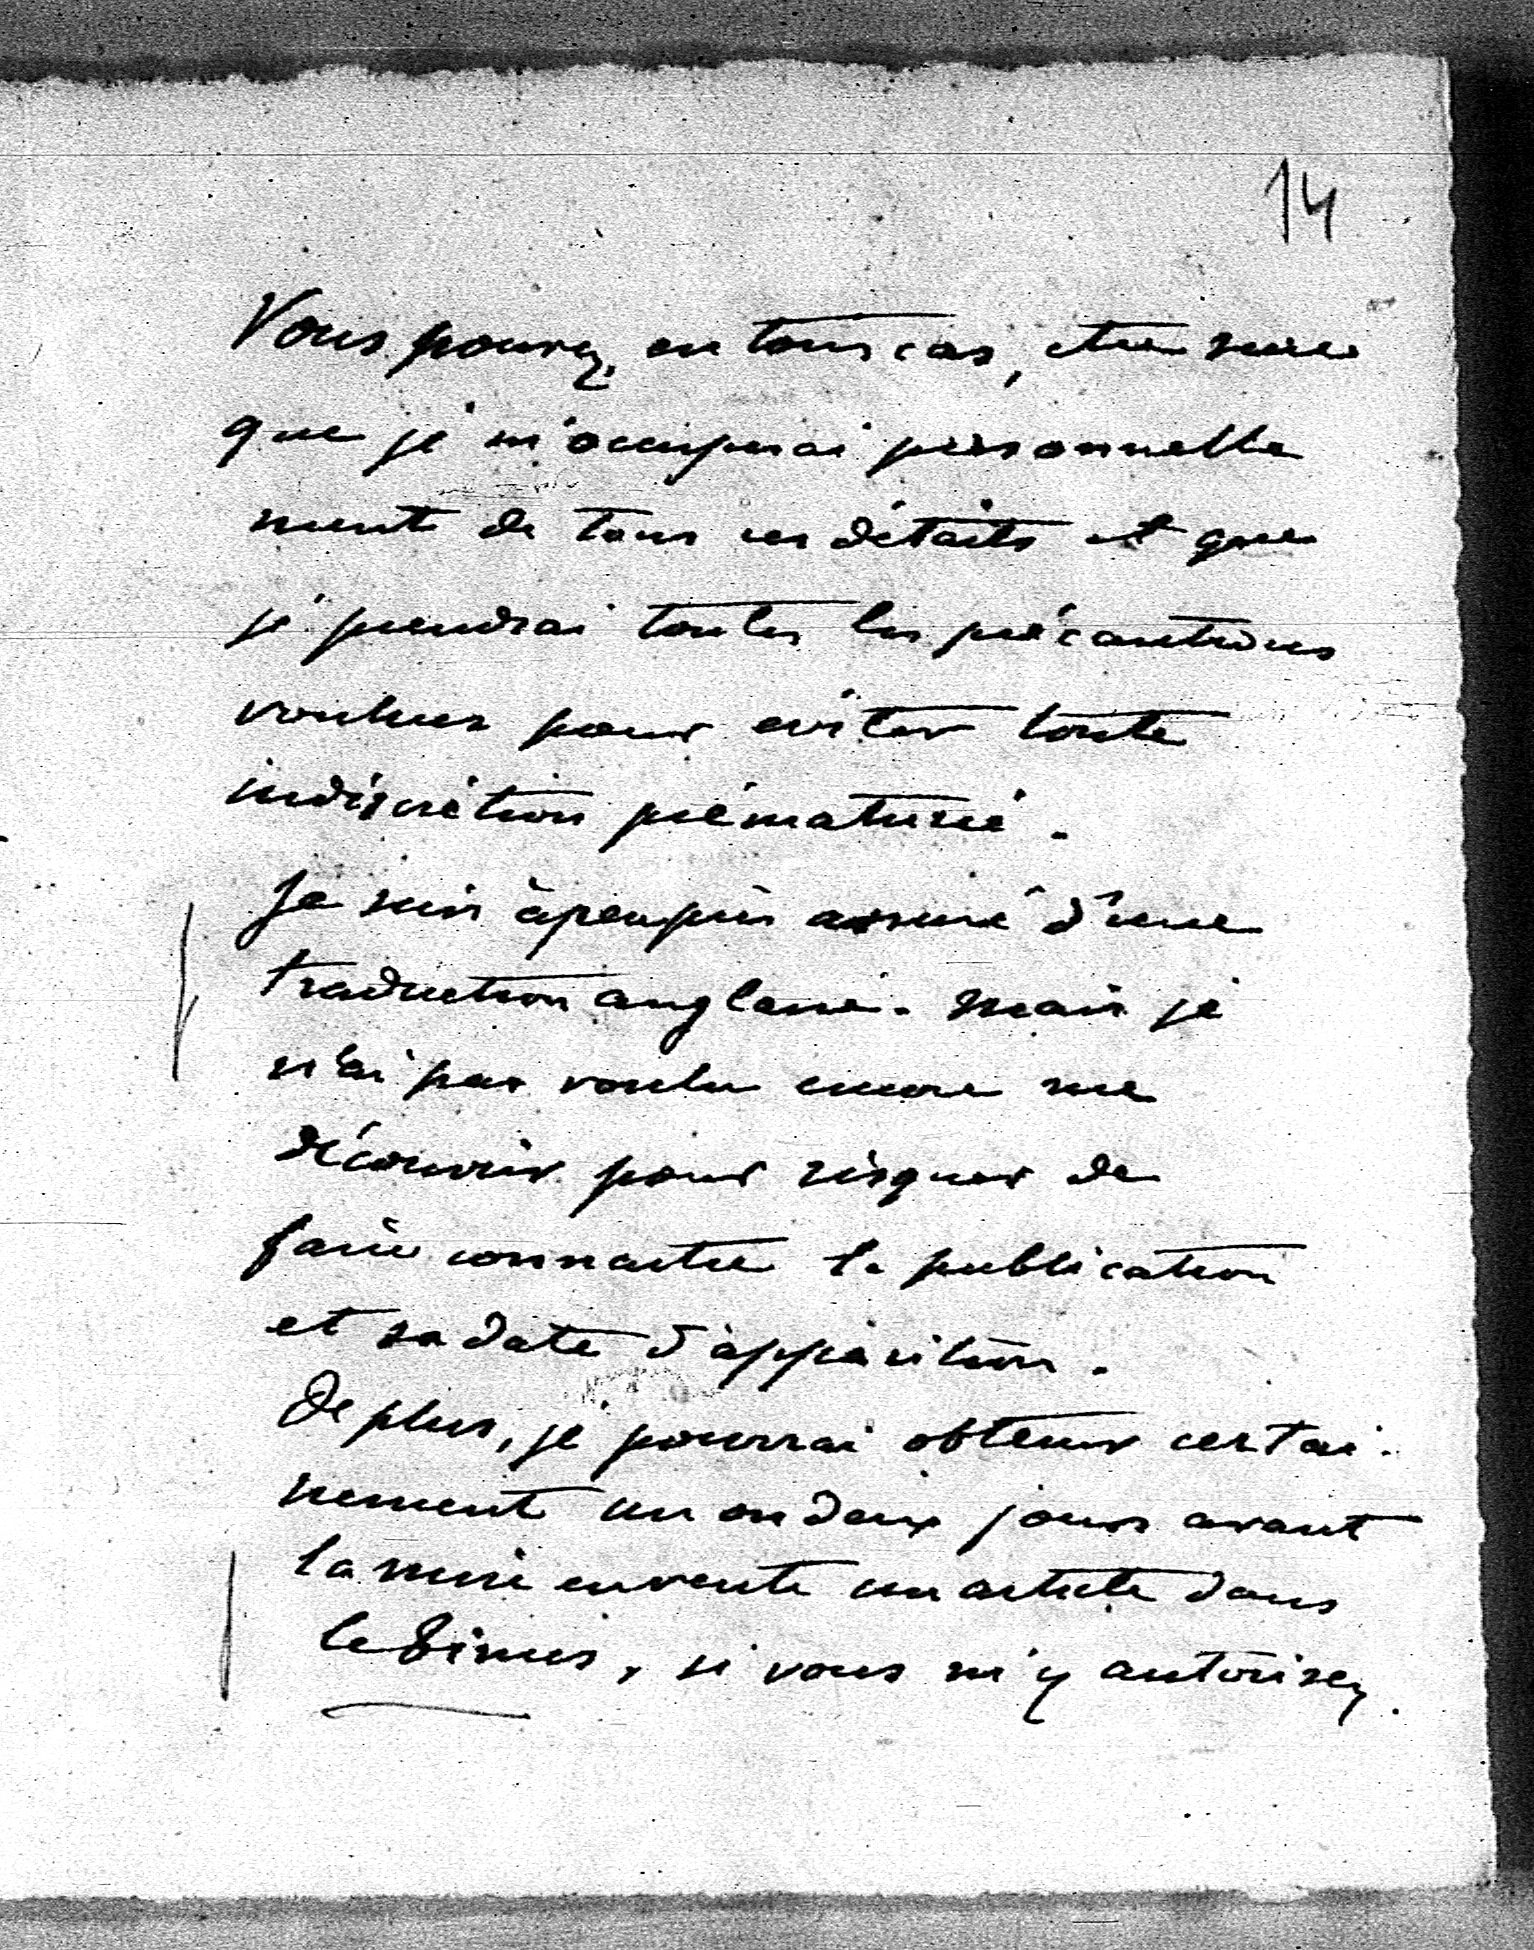 14
Vous pouvez, en tous cas, être sure
que je m'occuperai personnelle
ment de tous ces détails et que
je prendrai toutes les précautions
voulues pour eviter toute
indiscrétion prématurée.
Je suis à peu près assuré d'une
traduction anglaise. Mais je
n'ai pas voulu encore me
découvrir pour risquer de
faire connaitre la publication
et sa date d'apparition.
De plus, je pourrai obtenir certai-
nement un ou deux jours avant
la mise en vente un article dans
le Times, si vous m'y autorisez.